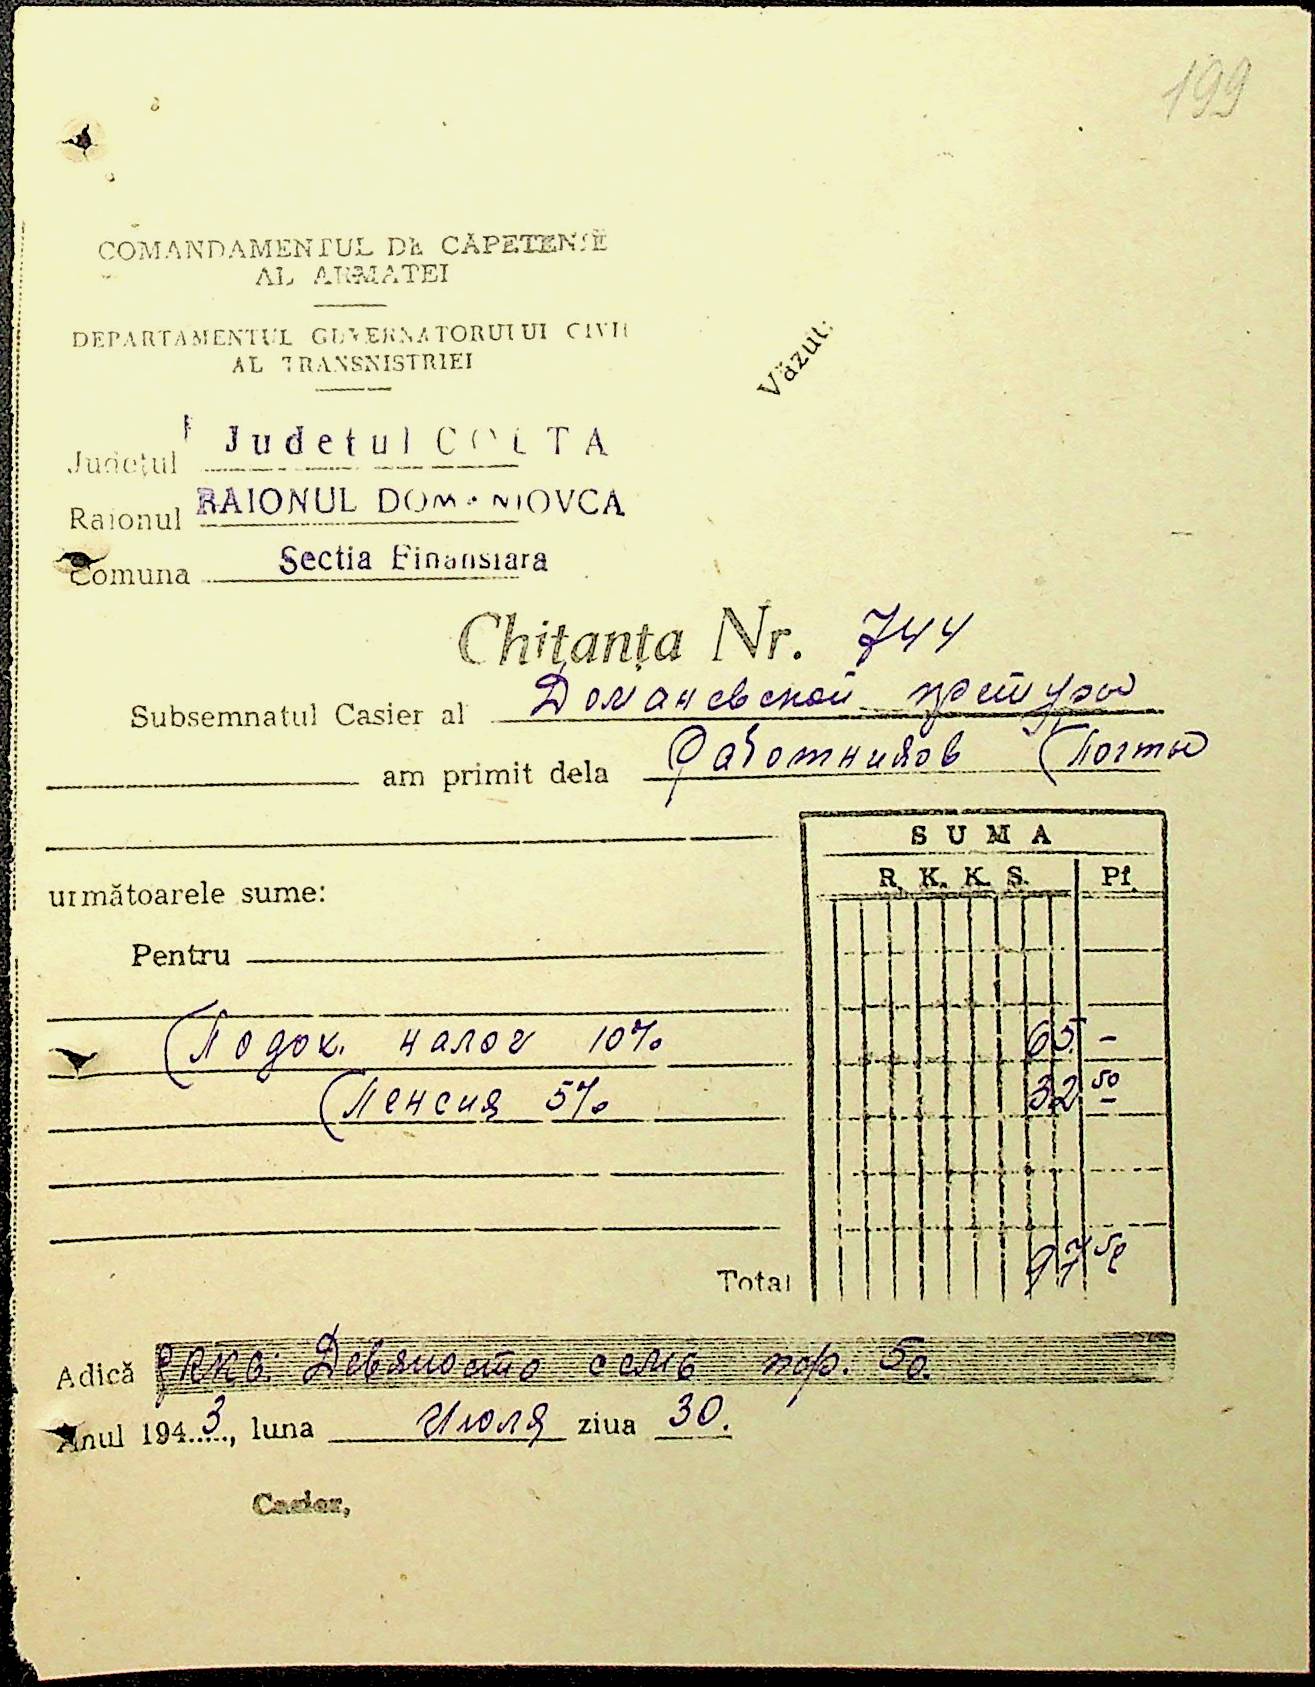 199
COMANDAMENTUL DE CĂPETENIE
AL ARMATEI
DEPARTAMENTUL GUVERNATORULUI CIVIL
AL TRANSNISTRIEI
Văzut:
Județul Judetul GOLTA
Raionul RAIONUL DOMANIOVCA
Comuna Sectia Finansiara
Chitanța Nr. 744
Subsemnatul Casier al Доманевской претуры
am primit dela Работников Почты
SUMA
R. K. K. S. Pf.
următoarele sume:
Pentru
Подох. налог 10% 65 –
Пенсия 5% 32 50
Total 97 50
Adică РККС: Девяносто семь пф. 50.
Anul 1943, luna Июля ziua 30.
Casier,